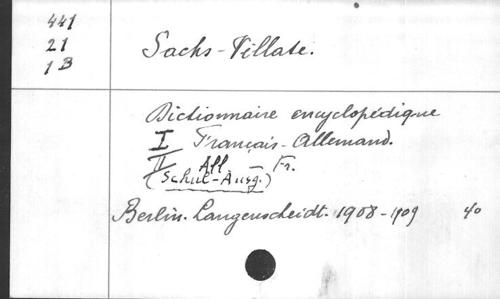 441
21
1 B
Sachs-Villate.
Dictionnaire encyclopédique
I Français-Allemand.
II All — Fr.
(Schul-Ausg.)
Berlin. Langenscheidt. 1908-1909 40